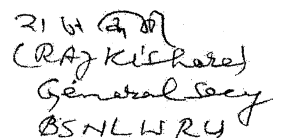 (RAJ Kishore)
General Secy
BSNLWRU